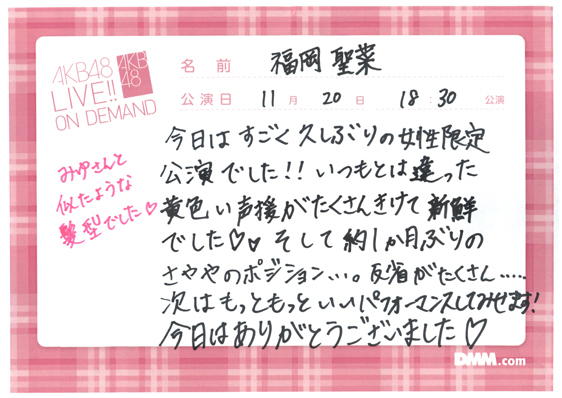 AKB48
LIVE!!
ON DEMAND
AKB
48
名前 福岡 聖菜
公演日 11月 20日 18:30 公演
今日は すごく 久しぶりの女性限定
公演でした!! いつもとは 違った
黄色い声援がたくさんきけて 新鮮
でした♡♡ そして 約1か月ぶりの
さややのポジション…。反省がたくさん……
次はもっともっといいパフォーマンスしてみせます!
今日はありがとうございました♡
みゆさんと
似たような
髪型でした♡
DMM.com